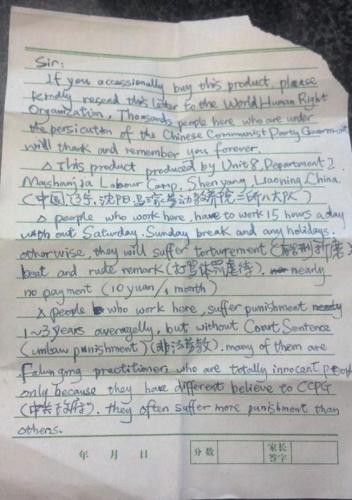 Sir:
If you occassionally buy this product, please
kindly resend this letter to the World Human Right
Organization. Thousands people here who are under
the persicution of the Chinese Communist Party Government
will thank and remember you forever.
△ This product produced by Unit 8, Department 2,
Mashanjia Labour Camp, Shenyang, Liaoning, China
(中国,辽宁,沈阳,马三家劳动教养院二所八大队)
△ people who work here, have to work 15 hours a day
with out Saturday, Sunday break and any holidays.
otherwise, they will suffer torturement (酷刑折磨),
beat and rude remark (打骂体罚虐待), nearly
no payment (10 yuan/1 month)
△ people who work here, suffer punishment
1~3 years averagelly, but without Court Sentence
(unlaw punishment) (非法劳教). many of them are
Falungong practitioner, who are totally innocent people
only because they have different believe to CCPG
(中共政府), they often suffer more punishment than
others.
年 月 日 分数 家长签字